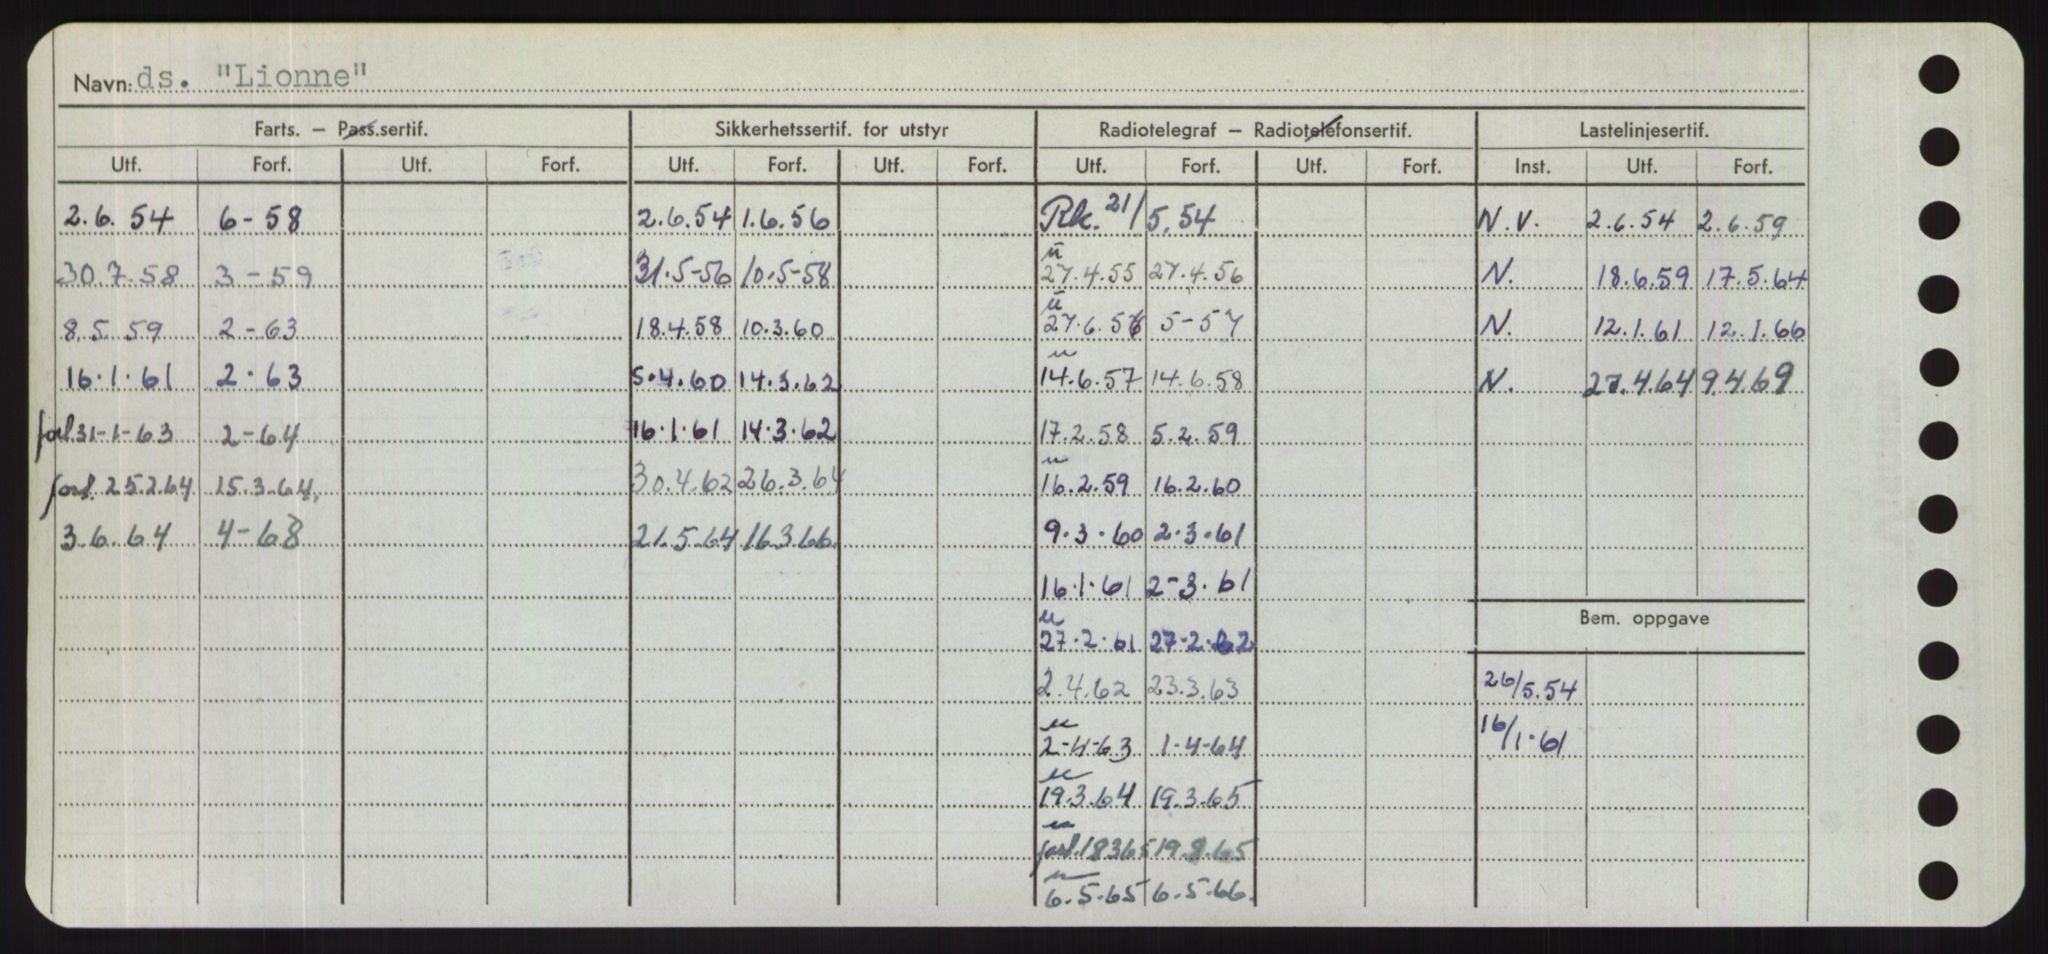 Navn: ds. "Lionne"
Farts. – Pass.sertif. Sikkerhetssertif. for utstyr Radiotelegraf – Radiotelefonsertif. Lastelinjesertif.
Utf. Forf. Utf. Forf. Utf. Forf. Utf. Forf. Utf. Forf. Utf. Forf. Inst. Utf. Forf.
2.6.54 6-58 2.6.54 1.6.56 Rk. 21/5.54 N.V. 2.6.54 2.6.59
30.7.58 3-59 31.5-56 10.5-58 u 27.4.55 27.4.56 N. 18.6.59 17.5.64
8.5.59 2-63 18.4.58 10.3.60 u 27.6.56 5-57 N. 12.1.61 12.1.66
16.1.61 2.63 5.4.60 14.3.62 u 14.6.57 14.6.58 N. 27.4.64 9.4.69
forl. 31-1-63 2-64 16.1.61 14.3.62 17.2.58 5.2.59
forl. 25.2.64 15.3.64, 30.4.62 26.3.64 u 16.2.59 16.2.60
3.6.64 4-68 21.5.64 16.3.66 9.3.60 2.3.61
16.1.61 2-3.61
Bem. oppgave
u 27.2.61 27.2.62
2.4.62 23.3.63 26/5.54
u 2-4-63 1-4-64 16/1.61
u 19.3.64 19.3.65
u forl. 18365 19.8.65
u 6.5.65 6.5.66.